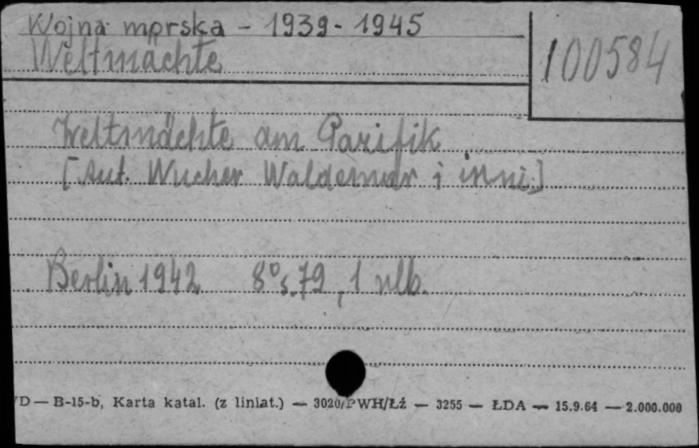 Wojna morska - 1939-1945
Weltmächte
100584
Weltmächte am Pazifik
[Aut. Wucher Waldemar i inni]
Berlin 1942 8° s. 79, 1 nlb.
D — B-15-b, Karta katal. (z liniat.) — 3020/PWH/Łź — 3255 — ŁDA — 15.9.64 — 2.000.000